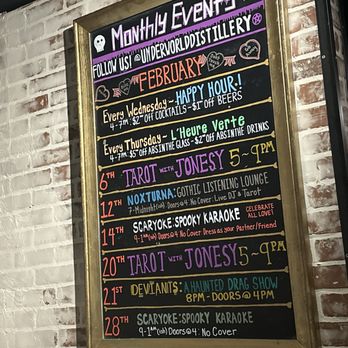 Monthly Events
FOLLOW US! @UNDERWORLDDISTILLERY
FEBRUARY
Every Wednesday~ HAPPY HOUR!
4-7PM. $2 OFF COCKTAILS-$1 OFF BEERS
Every Thursday~ L'Heure Verte
4-7PM. $5 OFF ABSINTHE GLASS-$2 OFF ABSINTHE DRINKS
6TH TAROT WITH JONESY 5~9PM
12TH NOXTURNA: GOTHIC LISTENING LOUNGE
7-Midnight Doors@4: No Cover: Live DJ & Tarot
14TH SCARYOKE: SPOOKY KARAOKE CELEBRATE ALL LOVE!
9-1AM Doors@4: No Cover Dress as your Partner/Friend
20TH TAROT WITH JONESY 5~9PM
21ST DEVIANTS: A HAUNTED DRAG SHOW
8PM - DOORS @ 4PM
28TH SCARYOKE: SPOOKY KARAOKE
9-1AM Doors@4: No Cover